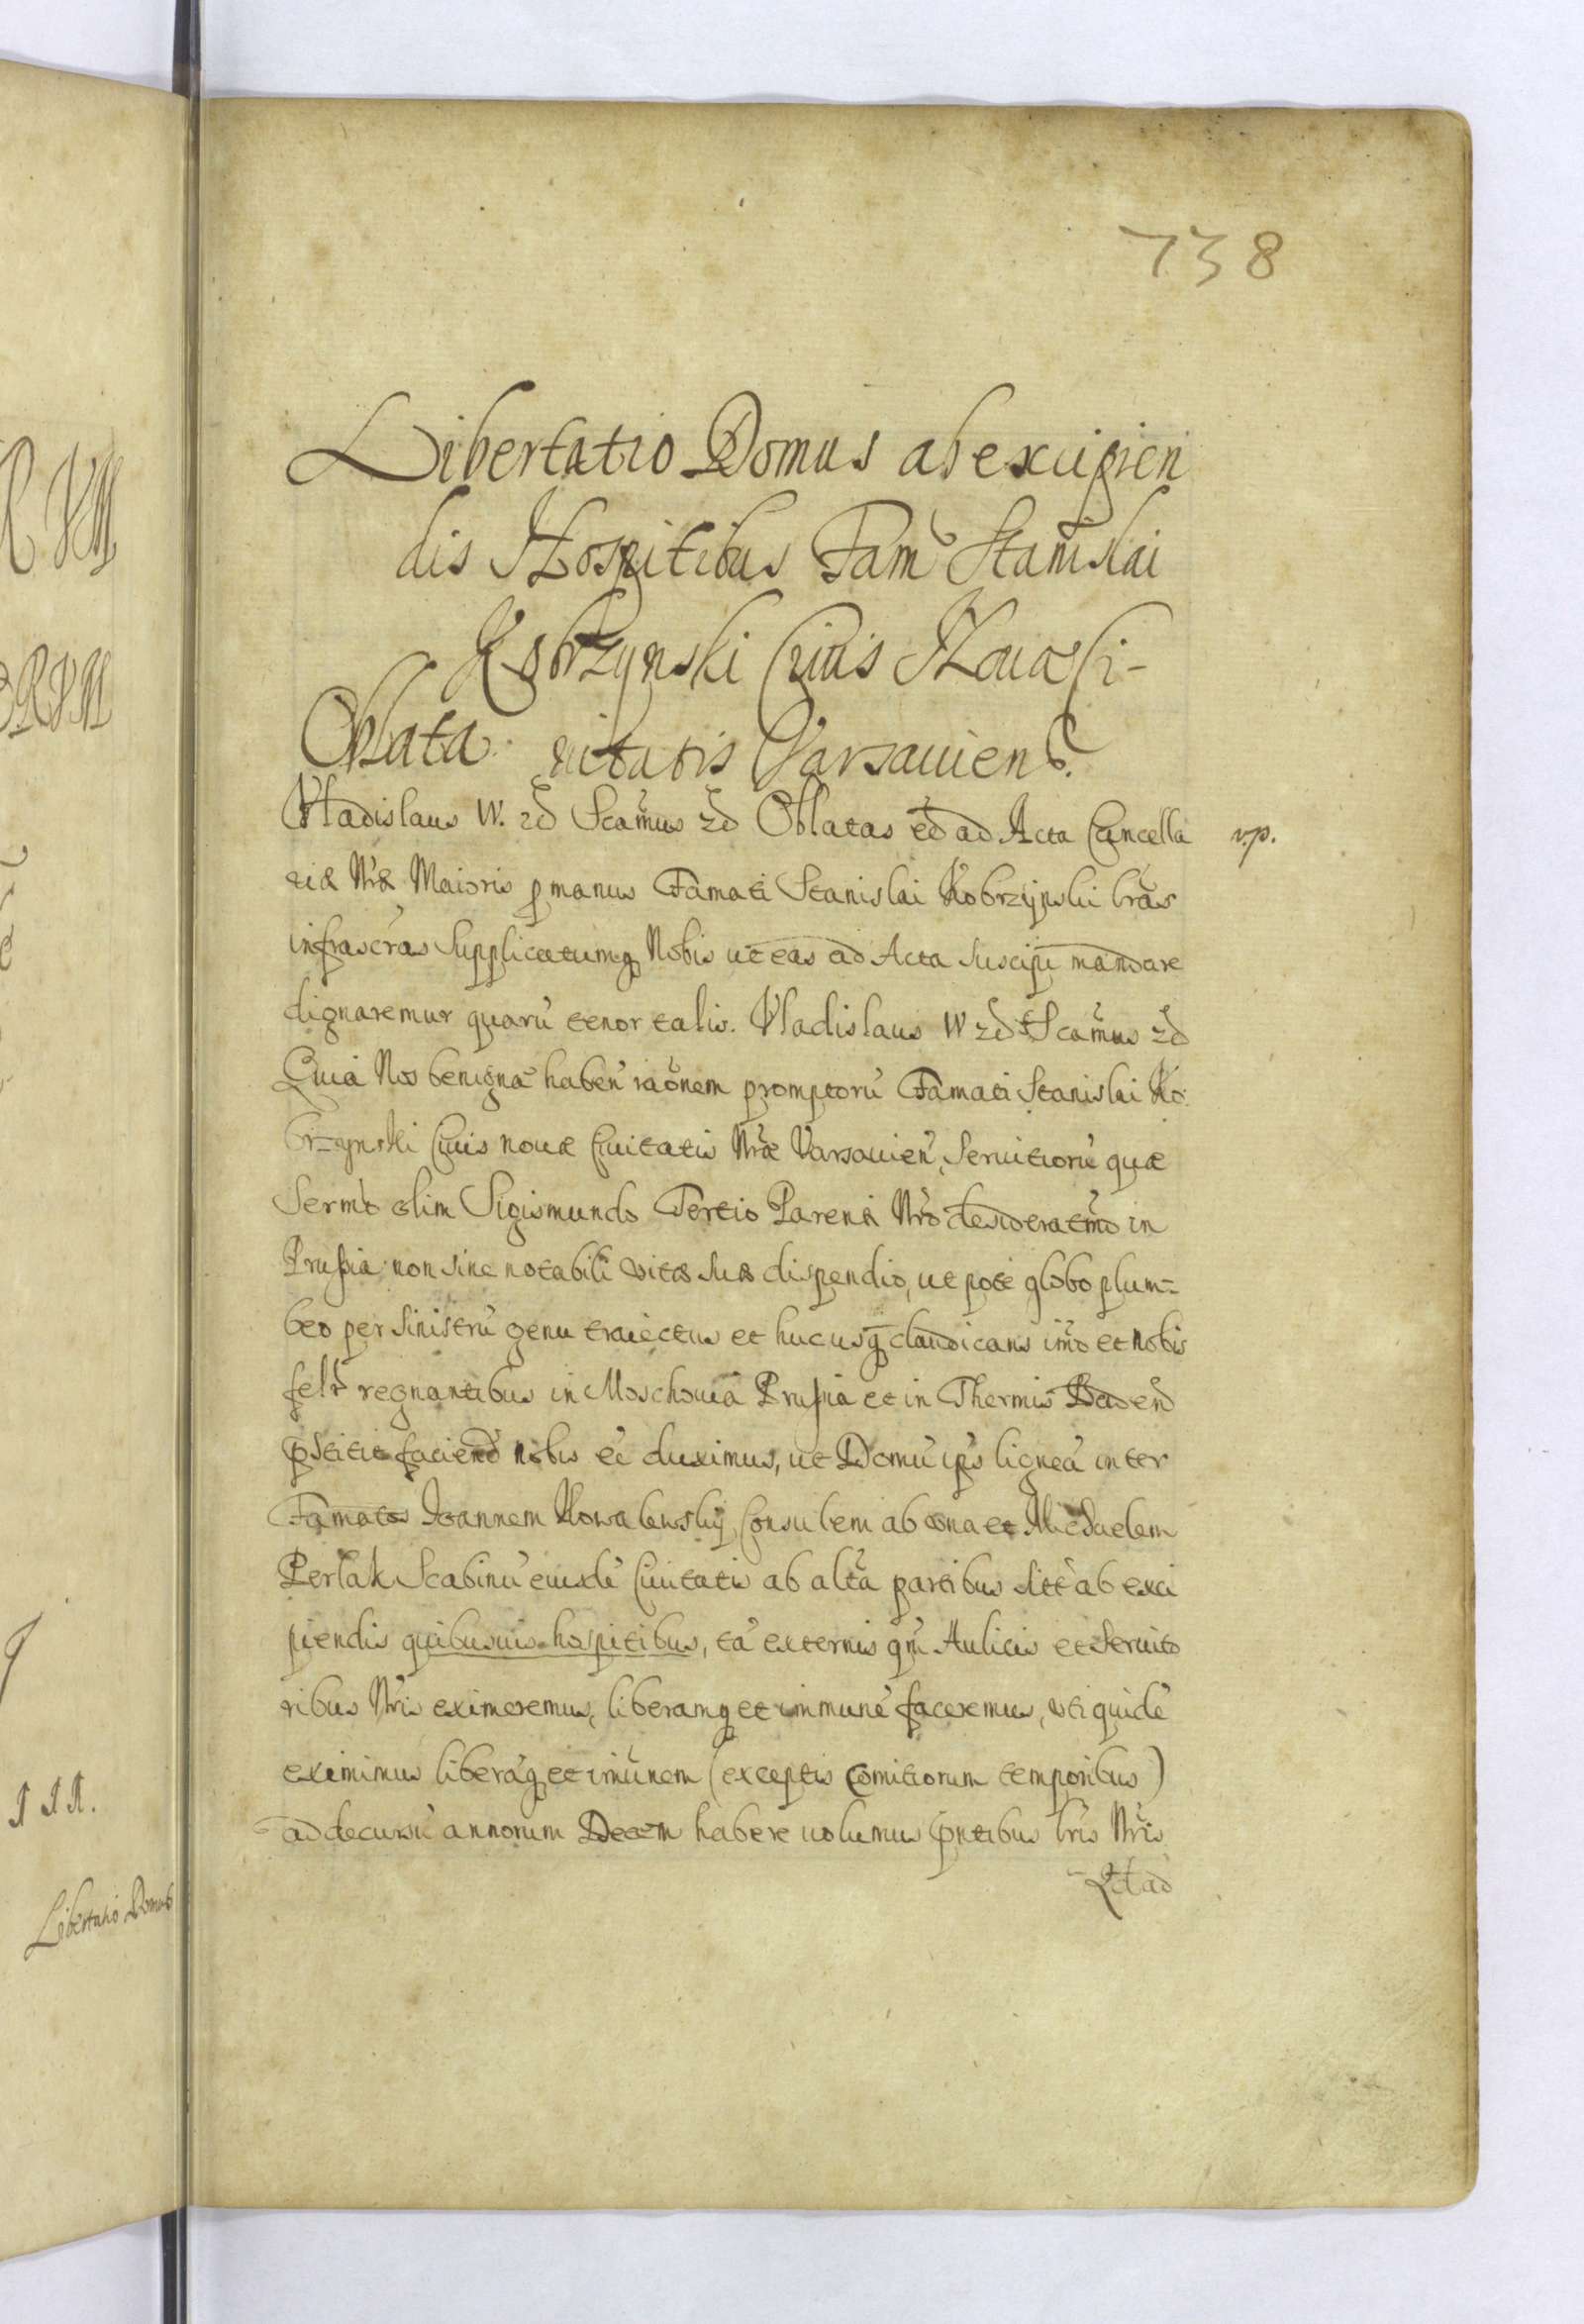 738
Libertatio Domus ab excipien
dis Hospitibus Fam. Stanislai
Kobrzynski Civis Nouæ Ci-
Oblata. uitatis Varsauien̄s.
Vladislaus IV. etc̄ Sca̅mus etc̄ Oblatas eē ad Acta Cancella
riæ Nr̄æ Maioris ꝑ manus Famati Stanislai Kobrzynski lr̄as
infrascr̄as Supplicatumq̨ Nobis ut eas ad Acta suscipi mandare
dignaremur quarū tenor talis. Vladislaus IV etc̄ Sca̅mus etc̄
Quia Nos benignā haben̄ rãonem promptorū Famati Stanislai Ko
brzynski Ciuis nouæ Ciuitatis Nr̄æ Varsauien̄, Seruitiorū quæ
Sermō olim Sigismundo Tertio Parenti Nr̄o desideratm̄o in
Prussia non sine notabili vitæ suæ dispendio, ut pote globo plum=
beo per sinistrū genu traiectus et hucusq̨ claudicans im̄o et nobis
felr̄ regnantibus in Moschouia Prussia et in Thermis Baden̄
p̄stitit faciend̄ nobis eē duximus, ut Domū ip̄s ligneā inter
Famatos Ioannem Kowalewsky Consulem ab vna et Michaelem
Perlak Scabinū eiusdē Ciuitatis ab altā partibus sitā ab exci
piendis quibusuis hospitibus, tā externis qm̄ Aulicis et Seruito
ribus Nr̄is eximeremus, liberamq̨ et immunē faceremus, uti quidē
eximimus liberāq̨ et imūnem (exceptis Comitiorum temporibus)
ad decursū annorum Decem habere uolumus p̄ntibus lr̄is Nr̄is
Quod ad
v.p.
III.
Libertatio Domus